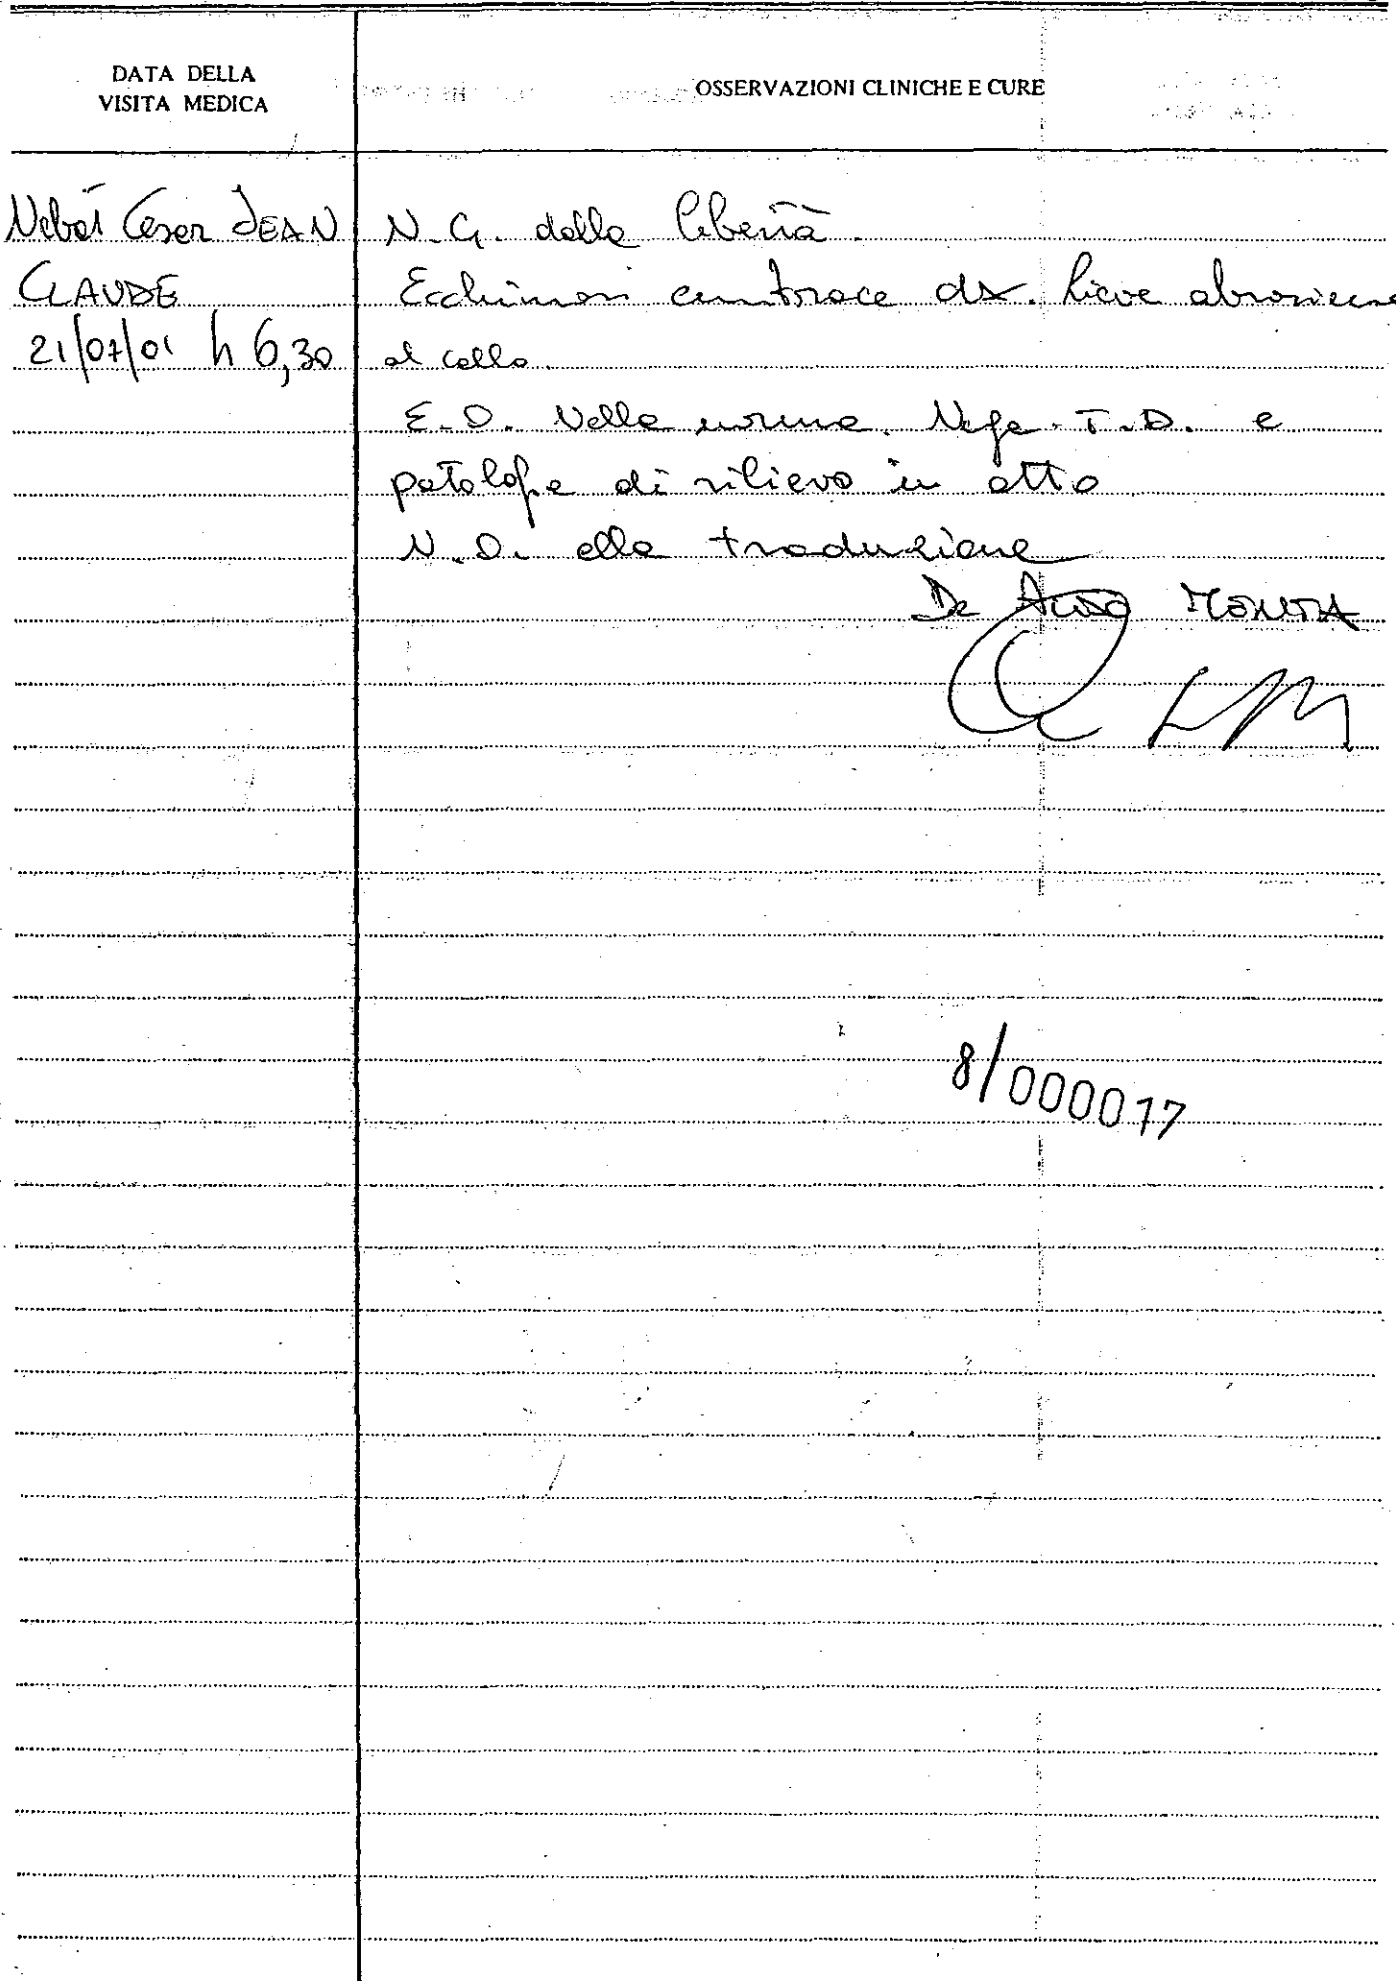 DATA DELLA
VISITA MEDICA
OSSERVAZIONI CLINICHE E CURE
JEAN
CLAUDE
21/07/01 h 6,30
N.G. dalla libertà.
Ecchimosi emitorace dx. lieve abrasione
al collo.
E.O. Nella norma. Nega T.D. e
patologie di rilievo in atto
N.O. alla traduzione
8/000017